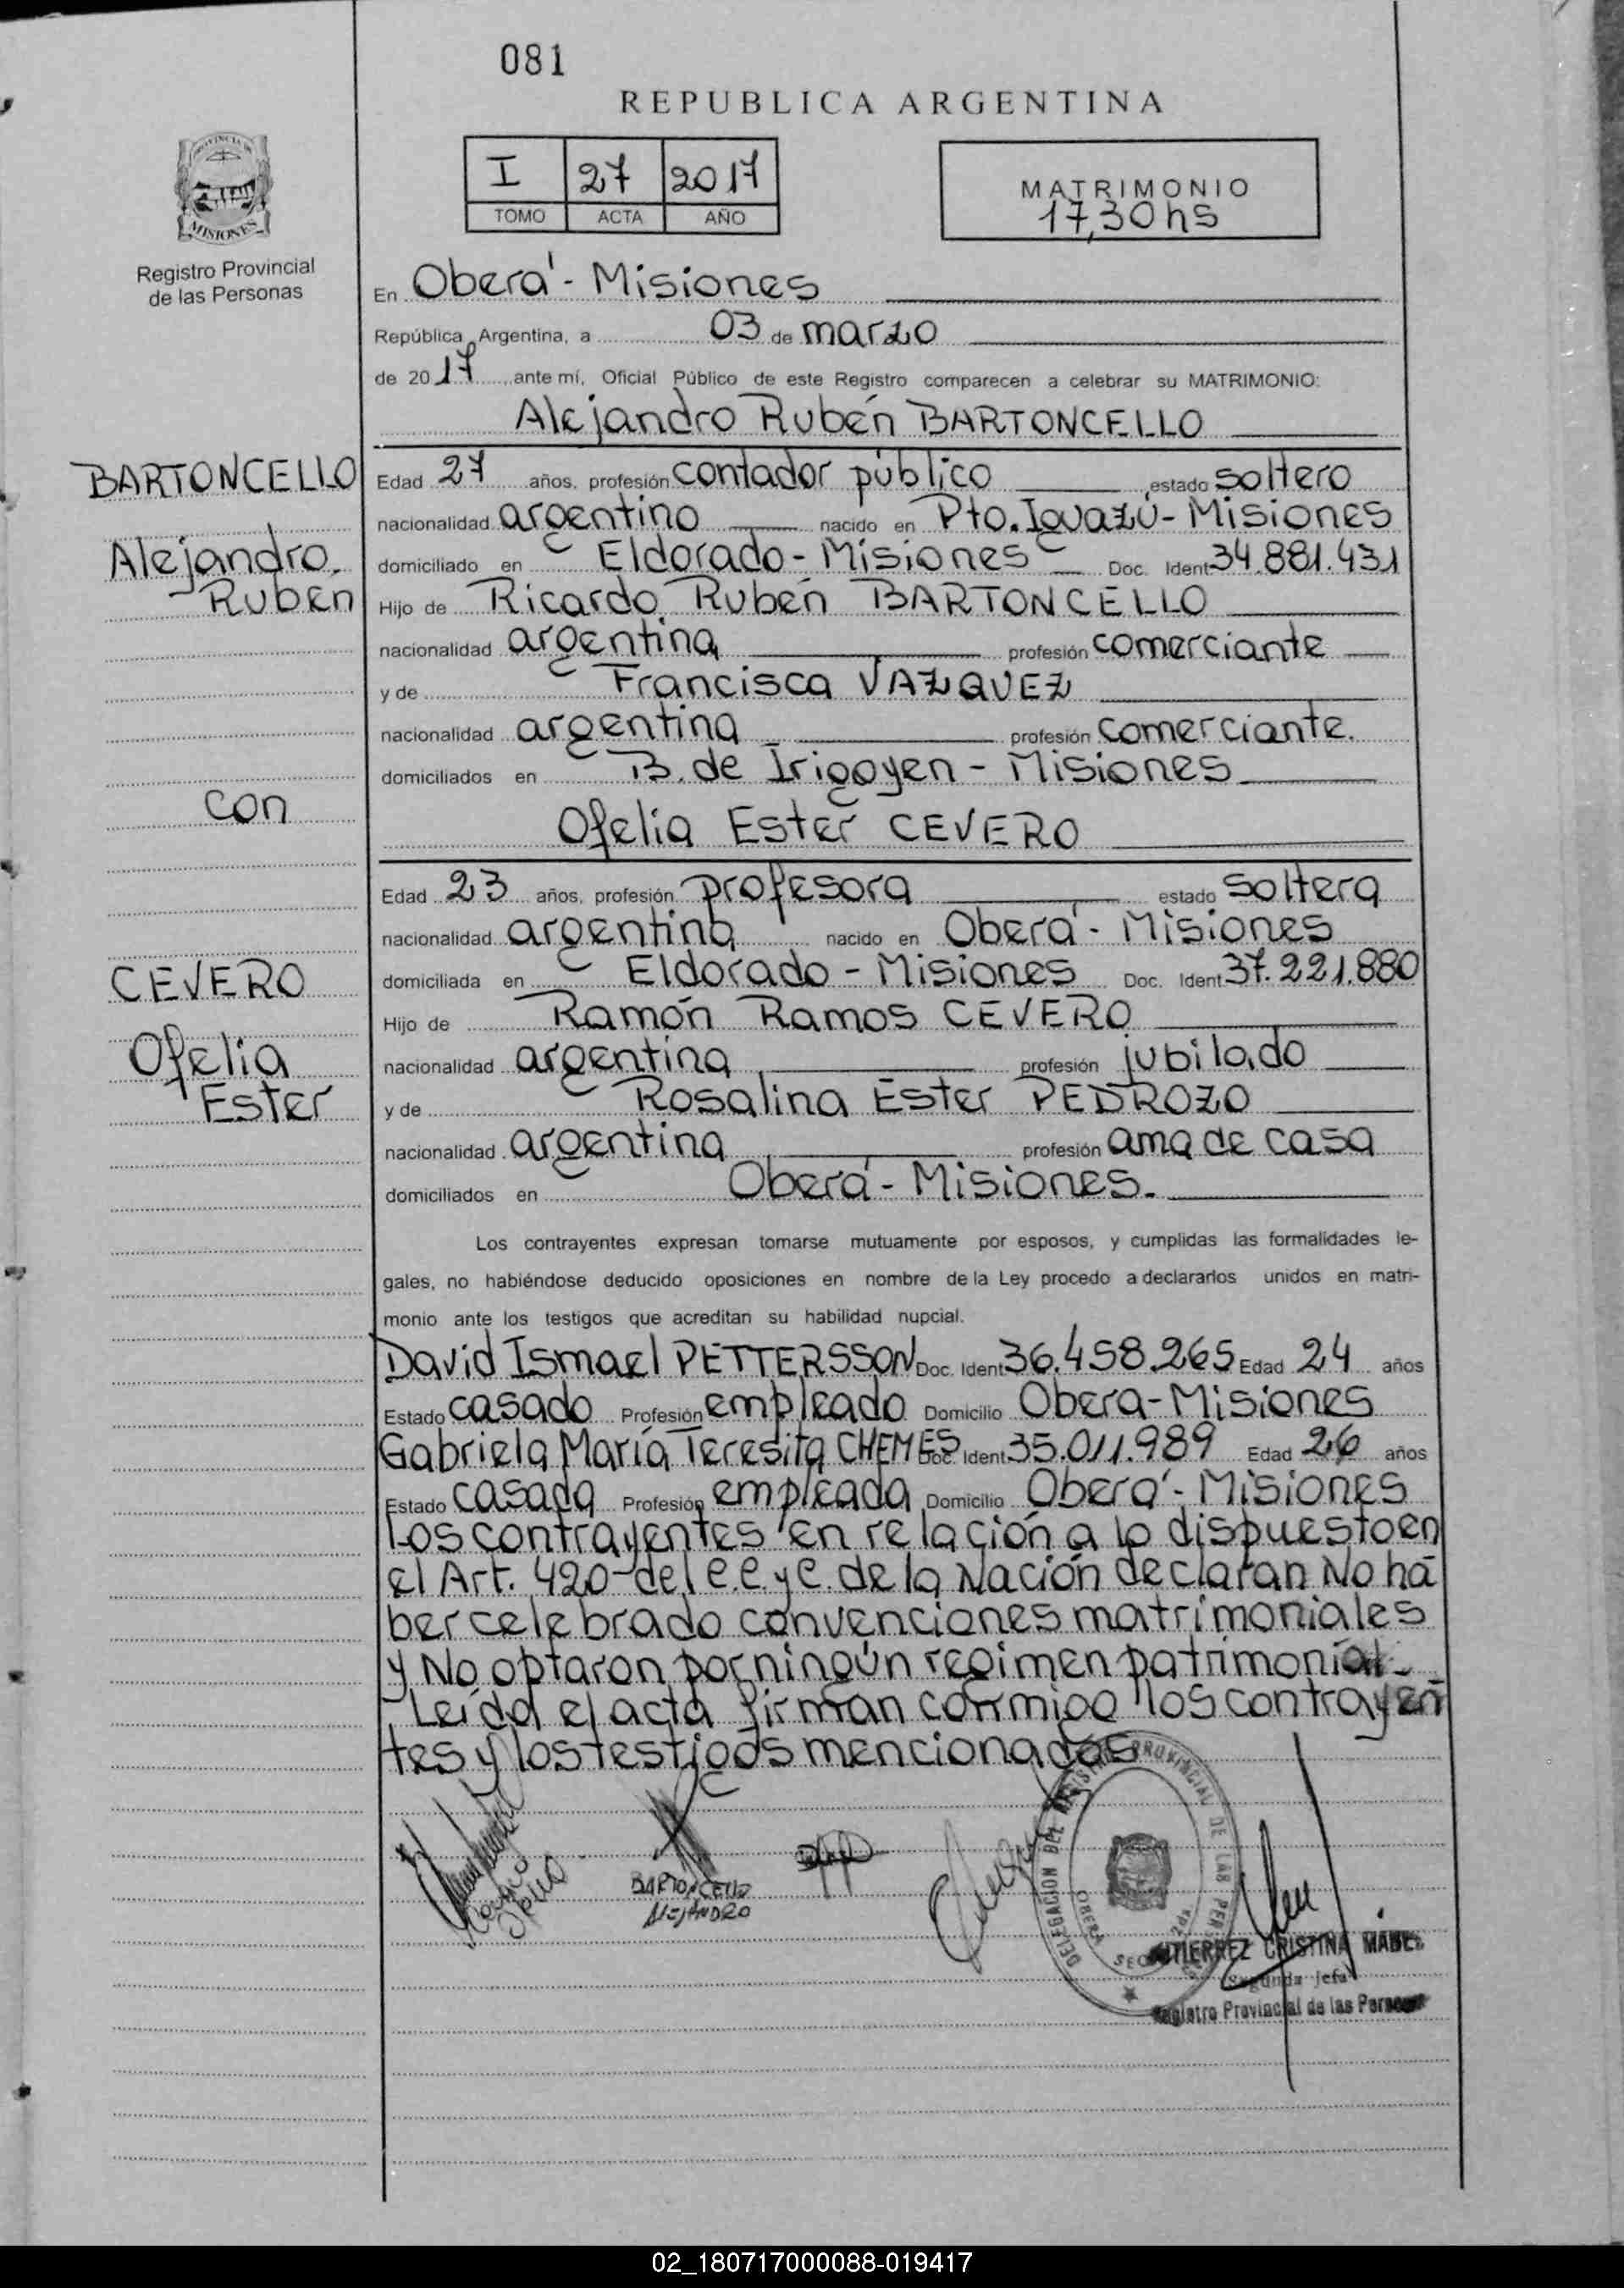 081
REPUBLICA ARGENTINA
I 27 2017
TOMO ACTA AÑO
MATRIMONIO
17,30 hs
PROVINCIA DE
MISIONES
Registro Provincial
de las Personas
En Oberá - Misiones
República Argentina, a 03 de marzo
de 2017 ante mí, Oficial Público de este Registro comparecen a celebrar su MATRIMONIO:
Alejandro Rubén BARTONCELLO
BARTONCELLO
Alejandro
Ruben
Edad 27 años, profesión contador público estado soltero
nacionalidad argentino nacido en Pto. Iguazú - Misiones
domiciliado en Eldorado - Misiones Doc. Ident 34.881.431
Hijo de Ricardo Rubén BARTONCELLO
nacionalidad argentina profesión comerciante
y de Francisca VAZQUEZ
nacionalidad argentina profesión comerciante.
domiciliados en B. de Irigoyen - Misiones
con
Ofelia Ester CEVERO
CEVERO
Ofelia
Ester
Edad 23 años, profesión profesora estado soltera
nacionalidad argentina nacido en Oberá - Misiones
domiciliada en Eldorado - Misiones Doc. Ident 37.221.880
Hijo de Ramón Ramos CEVERO
nacionalidad argentina profesión jubilado
y de Rosalina Ester PEDROZO
nacionalidad argentina profesión ama de casa
domiciliados en Oberá - Misiones.
Los contrayentes expresan tomarse mutuamente por esposos, y cumplidas las formalidades le-
gales, no habiéndose deducido oposiciones en nombre de la Ley procedo a declararlos unidos en matri-
monio ante los testigos que acreditan su habilidad nupcial.
David Ismael PETTERSSON Doc. Ident 36.458.265 Edad 24 años
Estado casado Profesión empleado Domicilio Obera - Misiones
Gabriela María Teresita CHEMES Doc. Ident 35.011.989 Edad 26 años
Estado casada Profesión empleada Domicilio Oberá - Misiones
Los contrayentes en relación a lo dispuesto en
el Art. 420 del C.C. y C. de la Nación declaran No ha
ber celebrado convenciones matrimoniales
y No optaron por ningún regimen patrimonial.
Leída el acta firman conmigo los contrayen
tes y los testigos mencionados
BARTONCELLO
ALEJANDRO
DELEGACION DEL REGISTRO PROVINCIAL DE LAS PERSONAS
OBERA
GUTIERREZ CRISTINA MABEL
Segunda Jefa
Registro Provincial de las Personas
02_180717000088-019417